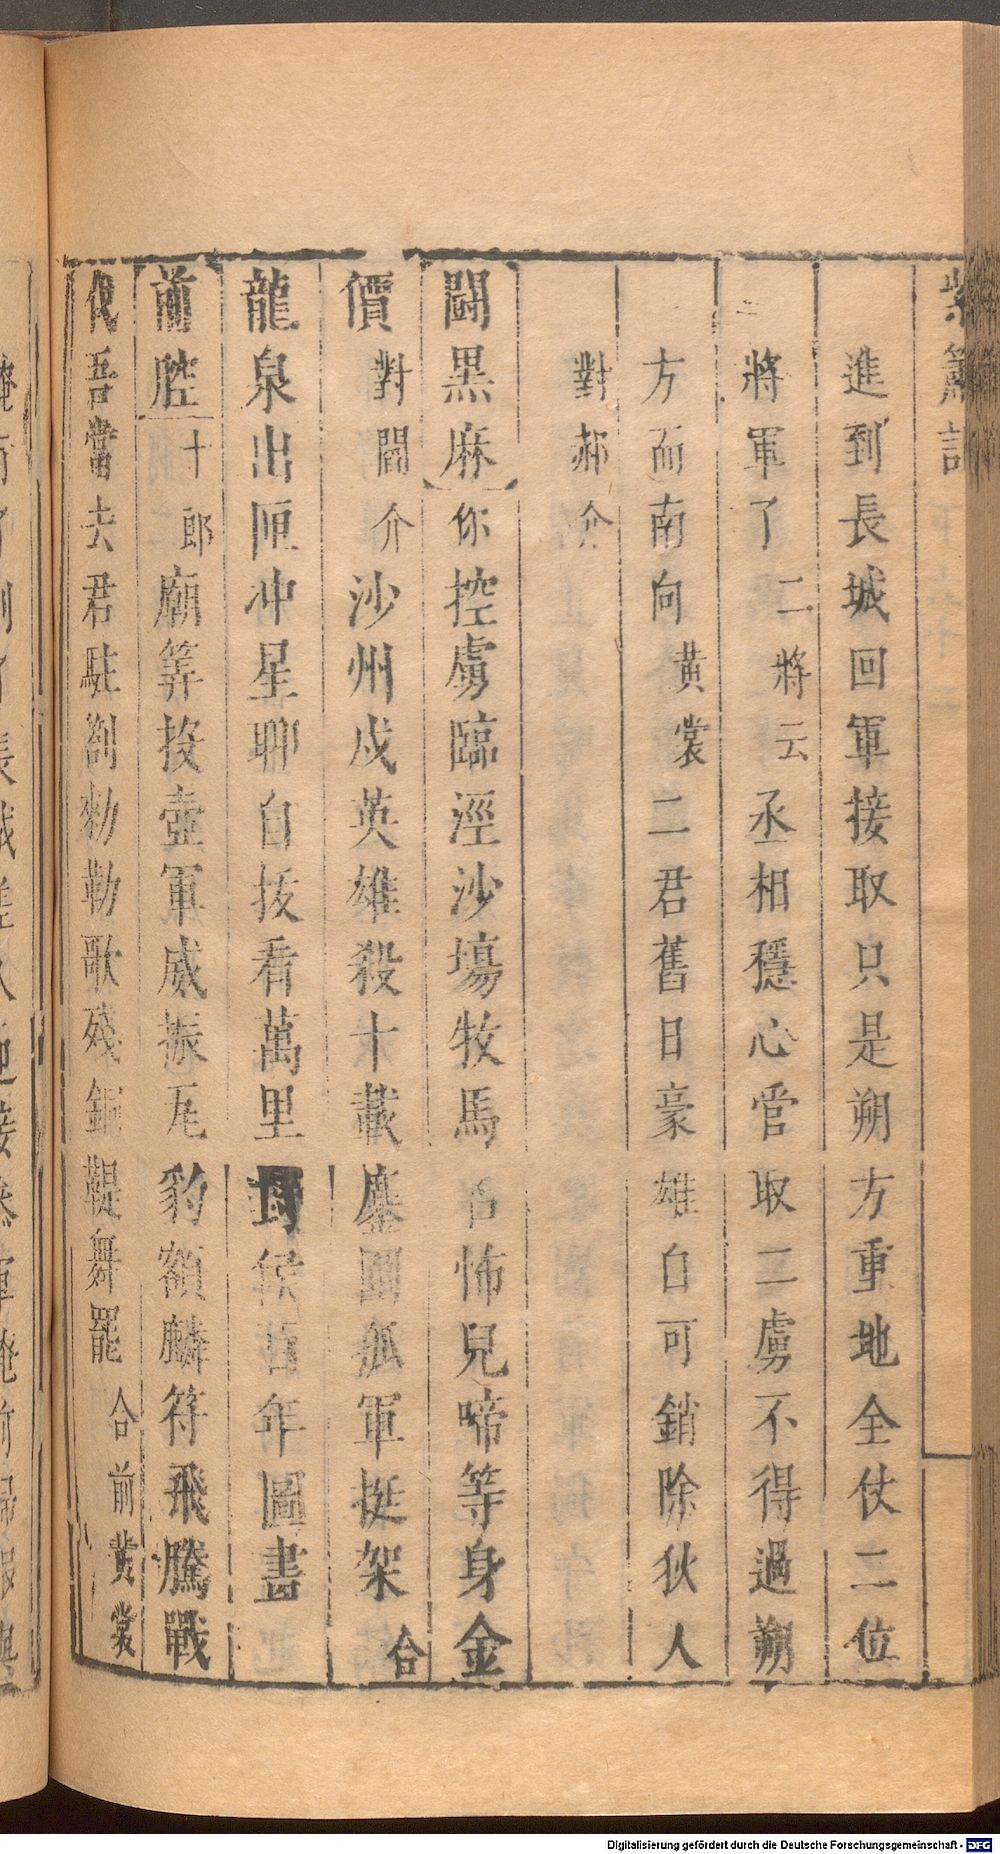 紫簫記
進到長城回軍接取只是朔方重地全仗二位
將軍了二將云丞相穩心管取二虜不得過朔
方而南向黃裳二君舊日豪雄自可銷除狄人
對郝介
鬪黑麻你控虜臨涇沙塲牧馬名怖兒啼等身金
價對閻介沙州戍英雄殺十載塵圍孤軍挺架合
龍泉出匣冲星聊自拔看萬里封侯百年圖書
前腔十郎廟筭投壺軍威振瓦豹額麟符飛騰戰
伐吾當去君駐劄勑勒歌殘銅鞮舞罷合前黃裳
Digitalisierung gefördert durch die Deutsche Forschungsgemeinschaft - DFG